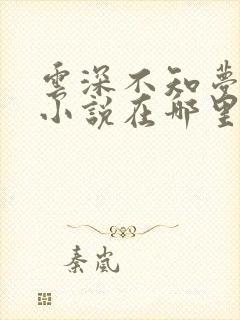 雲深不知夢
小說在哪里
秦嵐